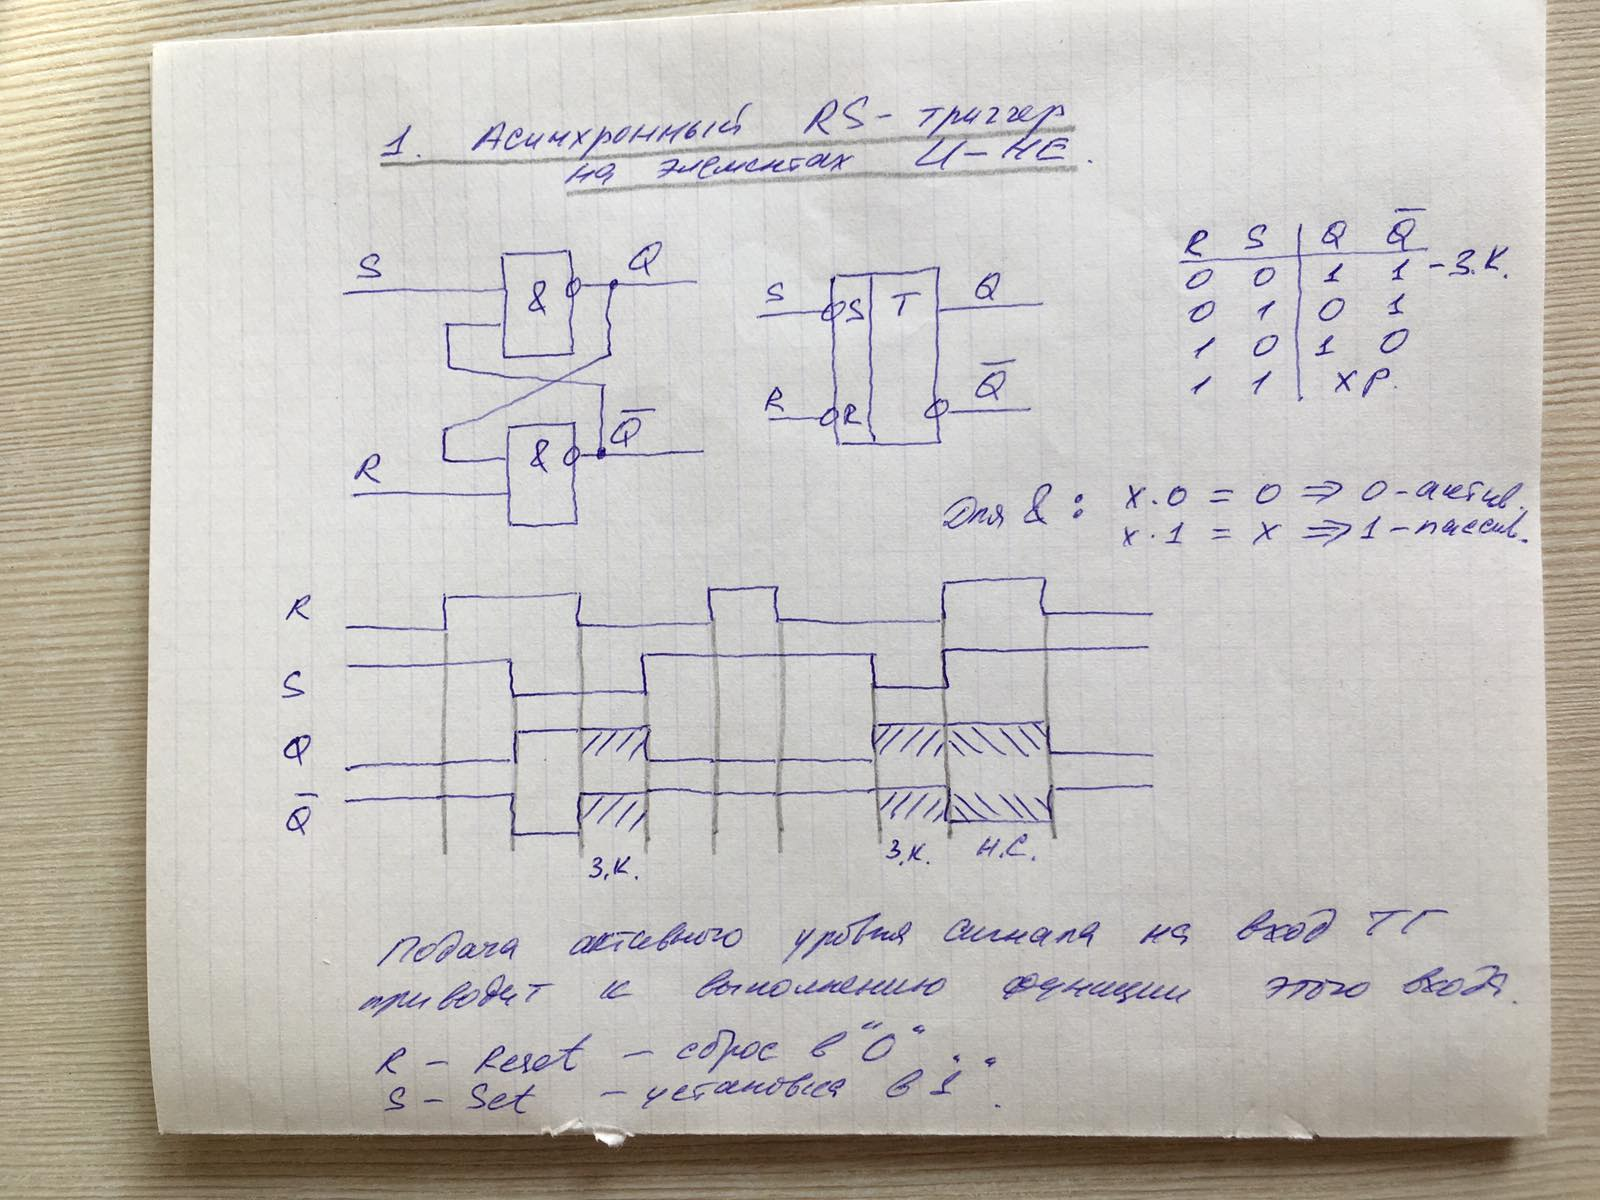 1. Асинхронный RS-триггер
на элементах И-НЕ.
S & Q
R & Q̅
S S T Q
R R Q̅
R S Q Q̅
0 0 1 1 -З.К.
0 1 0 1
1 0 1 0
1 1 ХР.
Для &: x·0 = 0 ⇒ 0-актив.
x·1 = x ⇒ 1-пассив.
R
S
Q
Q̅
З.К. З.К. Н.С.
Подача активного уровня сигнала на вход ТГ
приводит к выполнению функции этого входа.
R - Reset - сброс в "0"
S - Set - установка в "1".